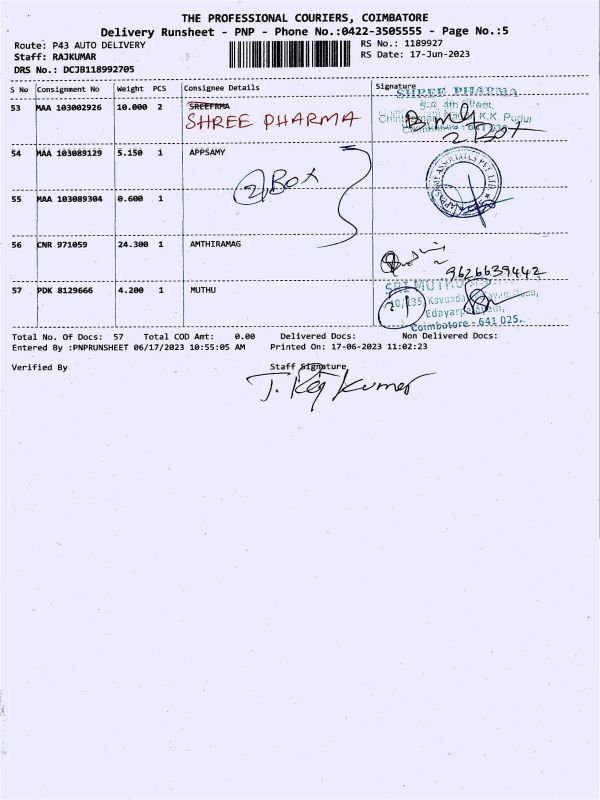 THE PROFESSIONAL COURIERS, COIMBATORE
Delivery Runsheet - PNP - Phone No.:0422-3505555 - Page No.:5
Route: P43 AUTO DELIVERY
RS No.: 1189927
Staff: RAJKUMAR
RS Date: 17-Jun-2023
DRS No.: DCJB118992705
S No Consignment No Weight PCS Consignee Details Signature
53 MAA 103002926 10.000 2 SREEFRMA
SHREE PHARMA
SHREE PHARMA
4th Street,
K.K. Pudur
2 Box
54 MAA 103089129 5.150 1 APPSAMY
2 Box
ASSOCIATES PVT LTD
55 MAA 103089304 0.600 1
56 CNR 971059 24.300 1 AMTHIRAMAG
9626639442
57 PDK 8129666 4.200 1 MUTHU
SRI MUTHU
Coimbatore - 641 025.
Total No. Of Docs: 57 Total COD Amt: 0.00 Delivered Docs: Non Delivered Docs:
Entered By :PNPRUNSHEET 06/17/2023 10:55:05 AM Printed On: 17-06-2023 11:02:23
Verified By Staff Signature
T. Raj Kumar